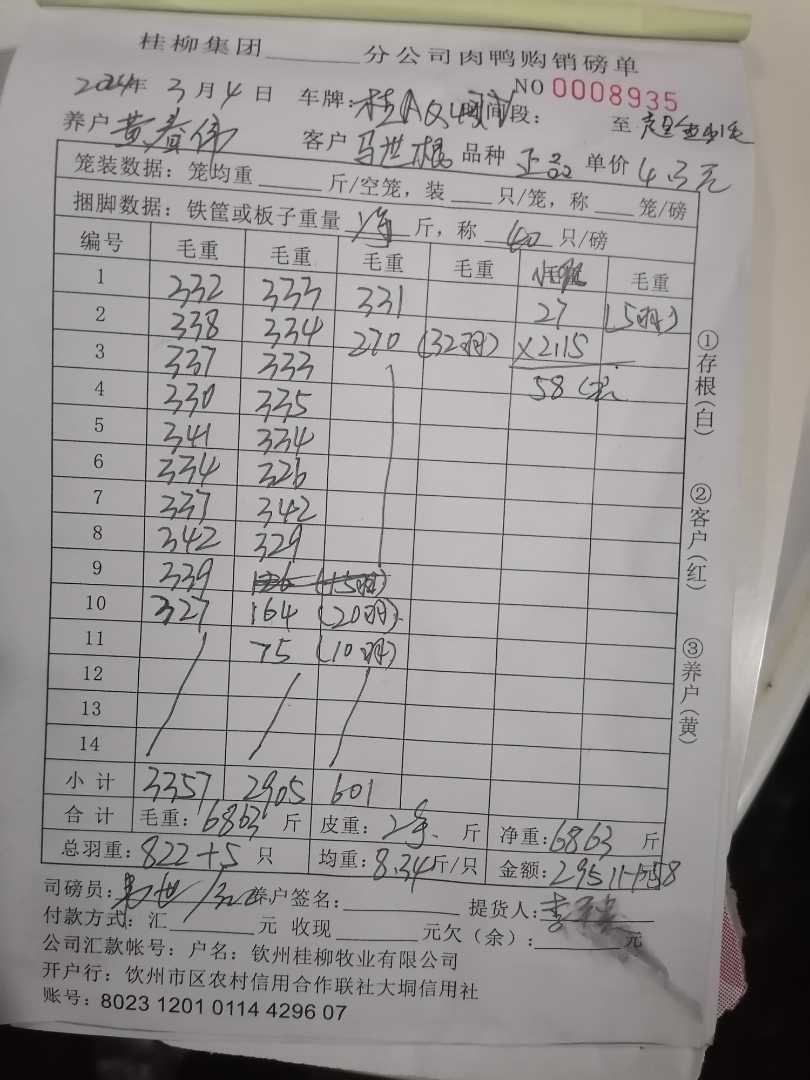 桂柳集团______分公司肉鸭购销磅单
2024年 3月4日 车牌:桂A 时间段: 至 NO 0008935
养户 黄春伟 客户 马世棍 品种 正品 单价 4.3元
笼装数据: 笼均重______斤/空笼, 装____只/笼, 称____笼/磅
捆脚数据: 铁筐或板子重量 斤, 称 40 只/磅
编号 毛重 毛重 毛重 毛重 毛重
1 332 333 331 27 (5羽)
2 338 334 270 (32羽) ×2.15
3 337 333 58
4 330 335
5 341 334
6 334 326
7 337 342
8 342 329
9 339 (15羽)
10 327 164 (20羽)
11 75 (10羽)
12
13
14
小计 3357 2905 601
合计 毛重: 6863 斤 皮重: 斤 净重: 6863 斤
总羽重: 822+5 只 均重: 8.34 斤/只 金额: 29511+58
司磅员: 养户签名:__________ 提货人:
付款方式: 汇________元 收现________元欠(余):________元
公司汇款帐号: 户名: 钦州桂柳牧业有限公司
开户行: 钦州市区农村信用合作联社大垌信用社
账号: 8023 1201 0114 4296 07
①存根(白)
②客户(红)
③养户(黄)